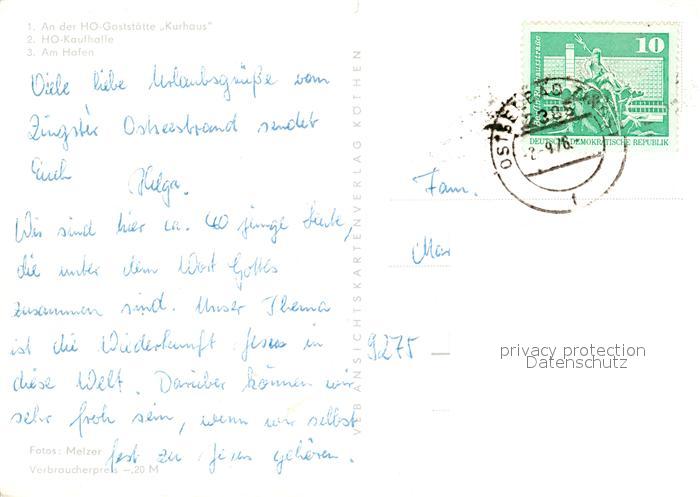 1. An der HO-Gaststätte „Kurhaus"
2. HO-Kaufhalle
3. Am Hafen
Viele liebe Urlaubsgrüße vom
Zingster Ostseestrand sendet
Euch Helga.
Wir sind hier ca. 40 junge Leute,
die unter dem Wort Gottes
zusammen sind. Unser Thema
ist die Wiederkunft Jesus in
diese Welt. Darüber können wir
sehr froh sein, wenn wir selbst
fest zu Jesus gehören.
Fotos: Melzer
Verbraucherpreis -,20 M
VEB ANSICHTSKARTENVERLAG KÖTHEN
10
DEUTSCHE DEMOKRATISCHE REPUBLIK
OSTSEEBAD ZINGST
2385
-2-9.76
Fam.
Mar
9275
privacy protection
Datenschutz